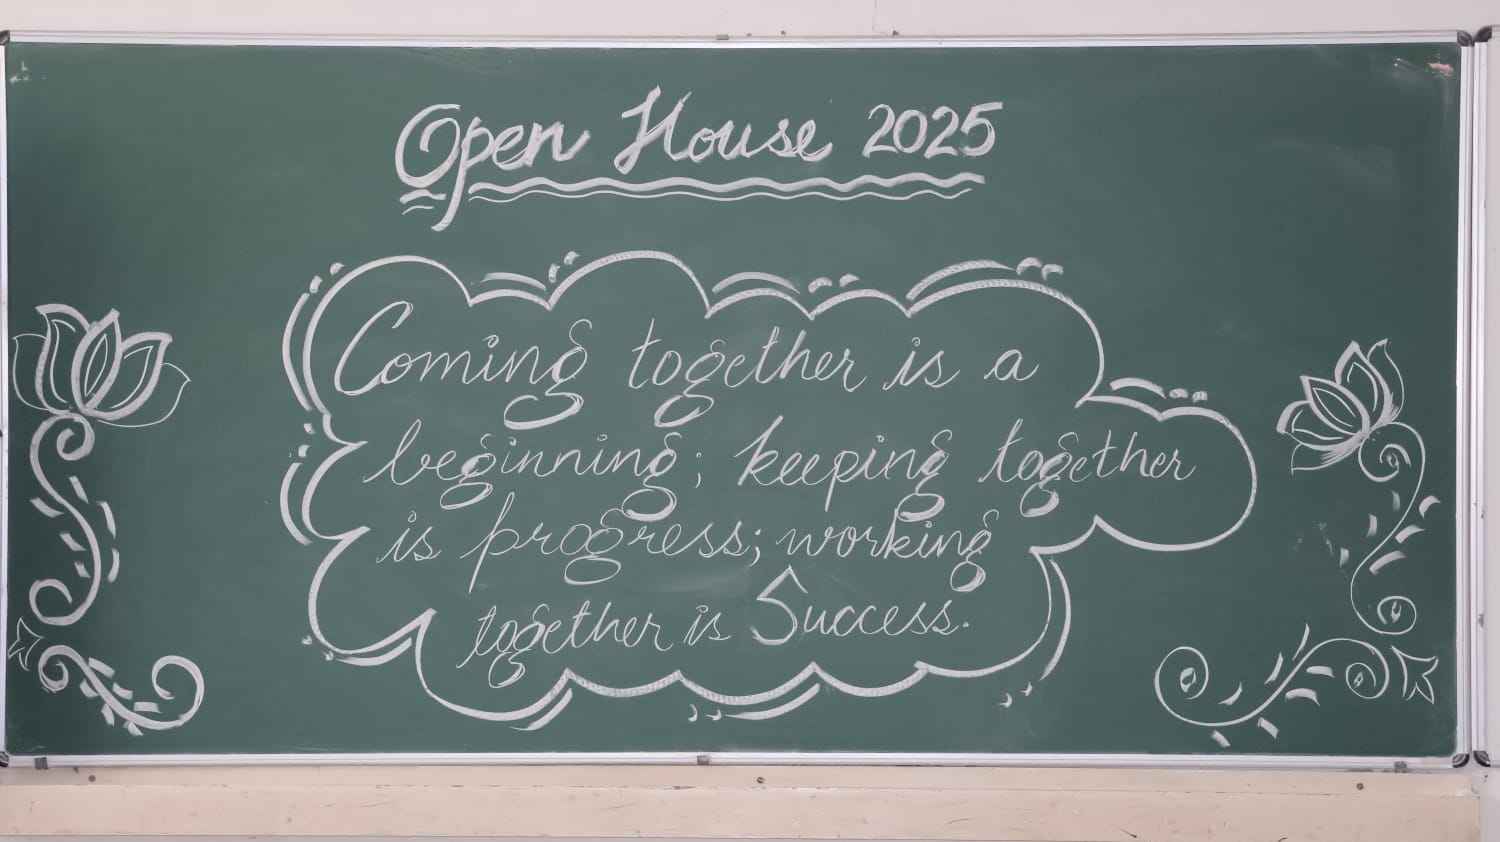 Open House 2025
Coming together is a
beginning; keeping together
is progress; working
together is Success.